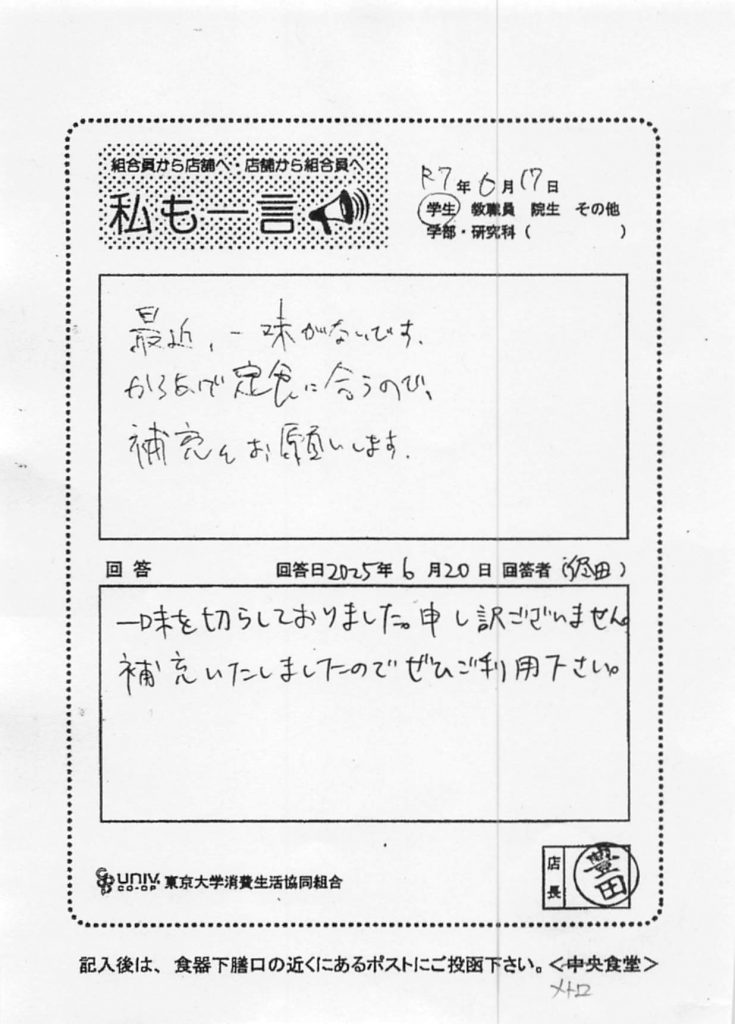 組合員から店舗へ・店舗から組合員へ
私も一言
R7年6月17日
学生 教職員 院生 その他
学部・研究科（　　　　　）
最近、一味がないです。
からあげ定食に合うので、
補充をお願いします。
回答 回答日2025年6月20日 回答者（窪田）
一味を切らしておりました。申し訳ございません。
補充いたしましたのでぜひご利用下さい。
UNIV. CO-OP 東京大学消費生活協同組合
店長 豊田
記入後は、食器下膳口の近くにあるポストにご投函下さい。＜中央食堂＞
メトロ